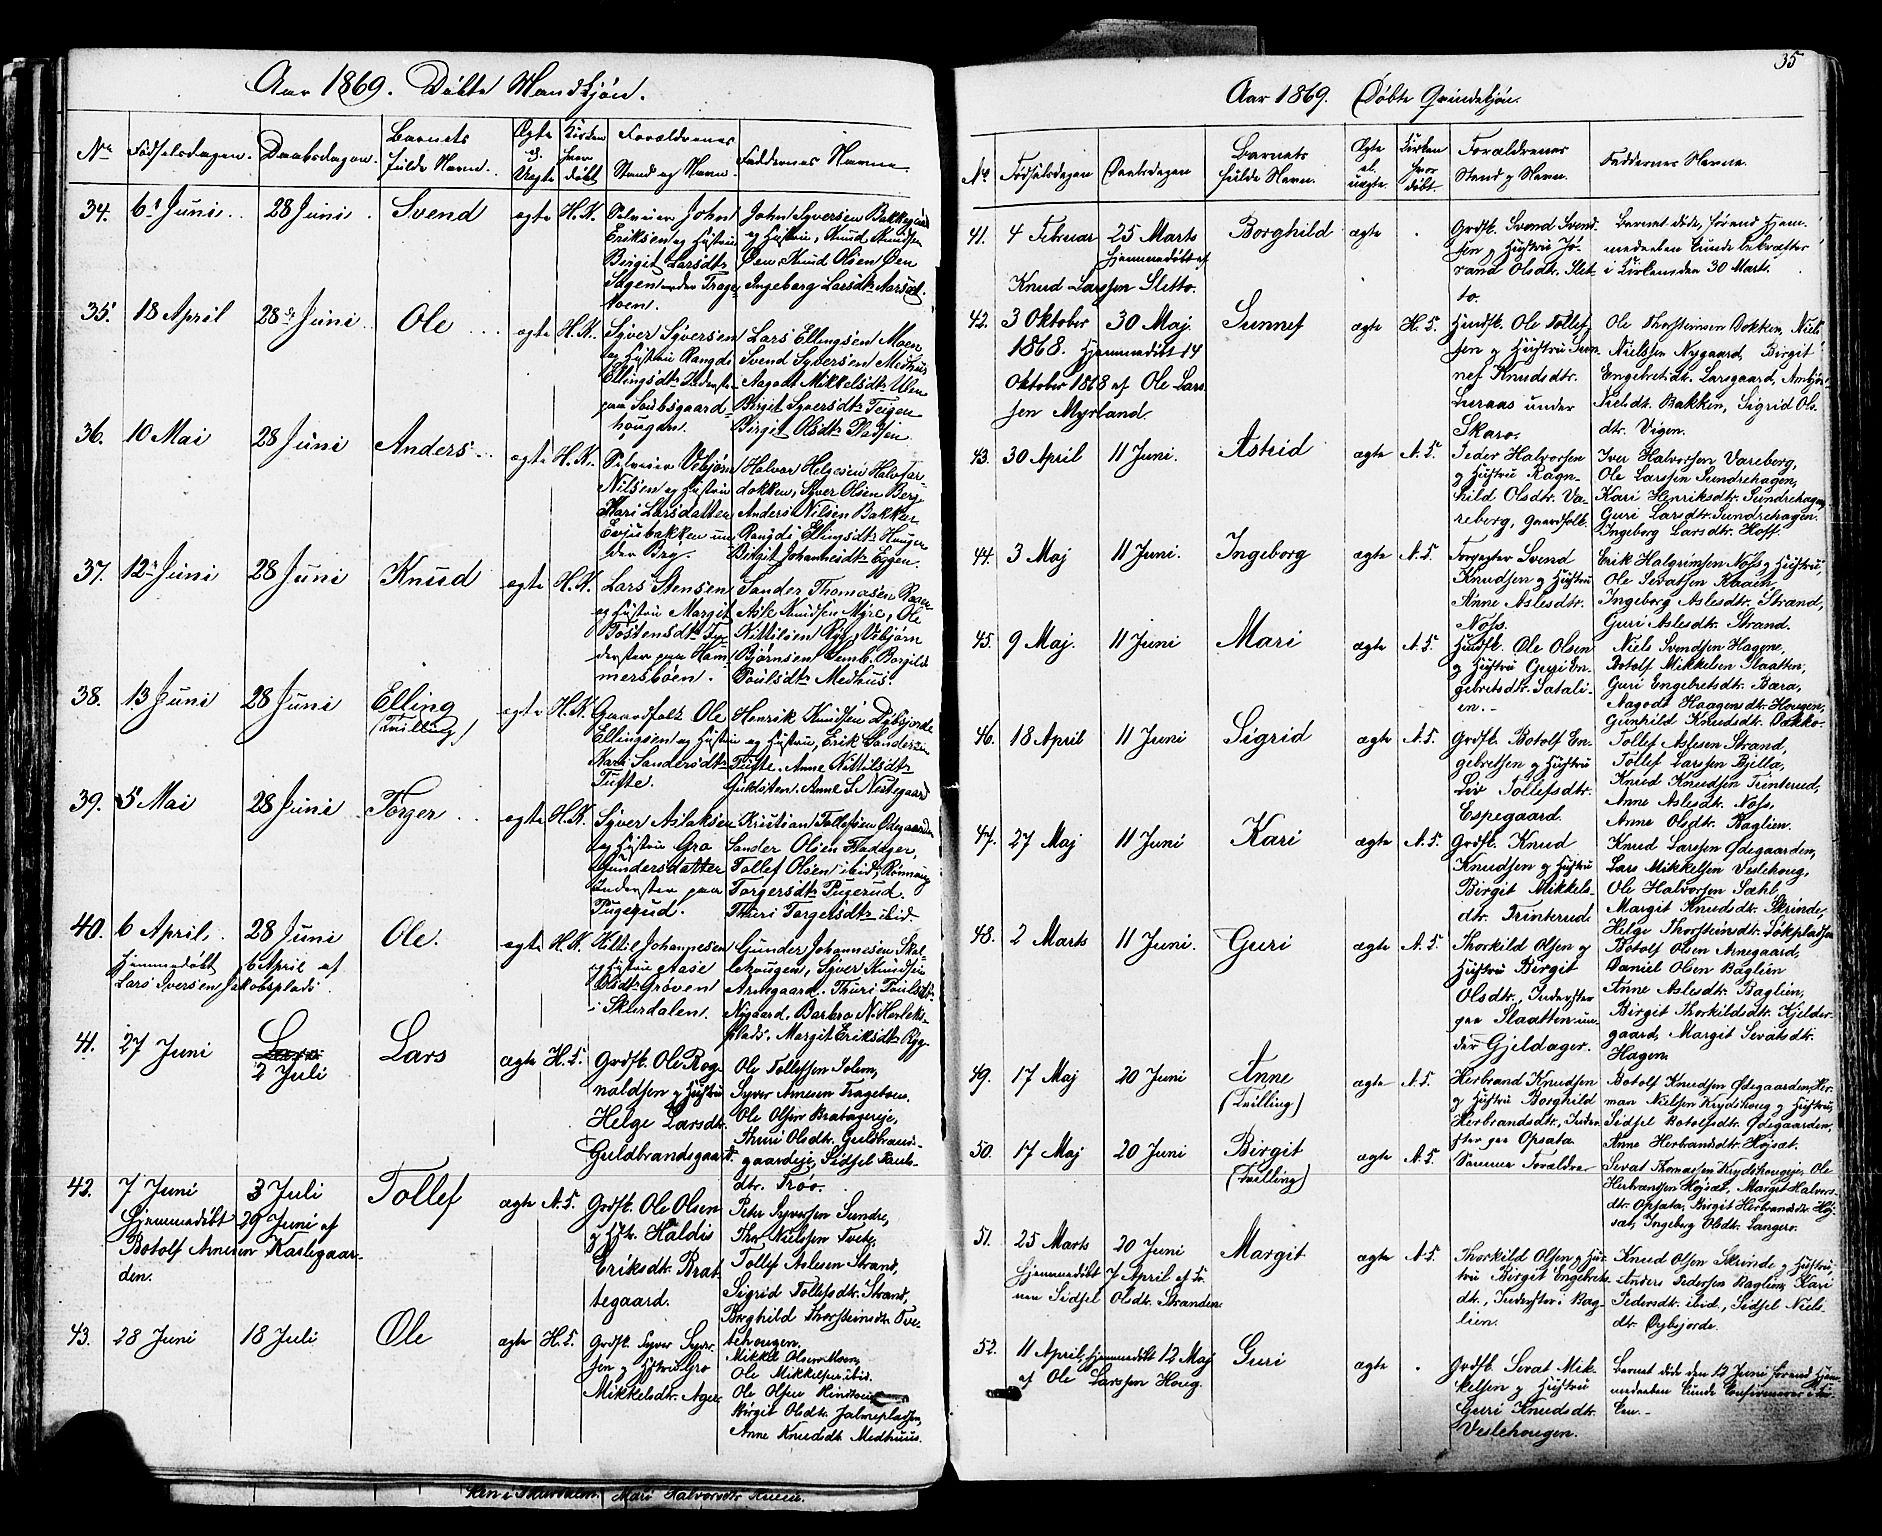 Aar 1869. Døbte Mandkjøn.
No Fødselsdagen. Daabsdagen. Barnets fulde Navn. Ægte el. Uægte Kirken hvor døbt Forældrenes Stand og Navn. Faddernes Navne.
34. 6te Juni. 28 Juni. Svend ægte H.K.
John
Eriksen og Hustru
Birgit Larsdtr
John Syversen Bakkegaard
og Hustru, Knud Knudsen
Øen, Knud Olsen Øen
Ingeborg Larsdtr Aarset.
35. 18 April 28de Juni Ole ægte H.K.
Syver Syversen
og Hustru Rangdi
Ellingsdtr
Lars Ellingsen Moen
Svend Syversen Medhus
Aagodt Mikkelsdtr Ulen
Birgit Syversdtr Teigen
Birgit Olsdtr Pladsen.
36. 10 Mai 28 Juni Anders ægte H.K.
Vebjørn
Nilsen og Hustru
Kari Larsdatter
Halvor Helgesen
Syver Olsen Berg
Anders Nilsen Bakken
Rangdi Ellingsdtr Haugen
Birgit Johannesdtr Eggen.
37. 12te Juni 28 Juni Knud ægte H.K.
Lars Stensen
og Hustru Margit
Tostensdtr
paa Hammersbøen.
Sander Thomasen
Asle Knudsen Myre, Ole
Kittilsen Rye, Vebjørn
Bjørnsen Semb, Borgild
Poulsdtr Medhus.
38. 13 Juni 28 Juni Elling ægte H.K.
(Tvilling)
Gaardfolk Ole
Ellingsen og Hustru
Kari Sandersdtr
Tufte.
Henrik Knudsen Dybsjorde
og Hustru, Erik Sandersen
Tufte. Anne Kittilsdtr
Anne S. Nestegaard
39. 5 Mai 28 Juni Torger ægte H.K.
Syver Aslaksen
og Hustru Gro
Gundersdatter
Inderster paa
Pugerud.
Kristian Tollefsen Ødegaarden
Sander Olsen
Tollef Olsen ibid, Rønnaug
Torgersdtr Pugerud.
Thuri Torgersdtr ibid.
40. 6 April. 28 Juni Ole. ægte H.K.
Hjemmedøbt 6 April af
Lars Iversen Jakobsplads.
Kittil Johannesen
og Hustru Aase
Olsdtr Grøven
i Skurdalen.
Gunder Johannesen
Syver Knudsen
Thuri Poulsdtr
Nygaard. Barbro N.
Margit Eriksdtr
41. 27 Juni Lars
2 Juli Lars ægte H.K.
Grdfk. Ole Rognaldsen
og Hustru
Helge Larsdtr.
Guldbrandsgaard.
Ole Tollefsen Solem,
Syver Arnesen Tragetoen.
Ole Olsen Bratageeie,
Thuri Olsdtr. Guldbrandsgaardeie,
Sidsel Paulsdtr.
Trøo.
42. 7 Juni 3 Juli Tollef ægte A.K.
Hjemmedøbt 29 Juni af
Botolf Arnesen Kaslegaarden.
Grdfk. Ole Olsen
og Hst. Haldis
Eriksdtr. Brattegaard.
Peter Syversen Sundre,
Thor Nielsen Tveto,
Tollef Aslesen Strand,
Sigrid Tollefsdtr. Strand,
Borghild Thorsteinsdtr. Tvetehougen.
43. 28 Juni 18 Juli Ole ægte H.K.
Grdfk. Syver Syversen
og Hstru Gro
Mikkelsdtr. Ager
Mikkel Olsen Moen,
Ole Mikkelsen ibid.
Ole Olsen
Birgit Olsdtr.
Anne Knudsdt Medhuus.
35
Aar 1869. Døbte Qvindekjøn.
No. Fødselsdagen Daabsdagen Barnets fulde Navn. Ægte el. uægte. Kirken hvor døbt. Forældrenes Stand og Navn. Faddernes Navne.
41. 4 Februar 25 Marts Borghild ægte
Hjemmedøbt af
Knud Larssen Sletto.
Grdfk. Svend Svendsen
og Hustru Jørand
Olsdtr. Sletto.
Barnet døde, førend Hjemmedaaben
kunde bekræftes
i Kirken den 30 Marts.
42. 3 Oktober 30 Maj. Sunnef ægte H.K.
1868. Hjemmedøbt 14
Oktober 1868 af Ole Larssen
Myrland.
Husfk. Ole Tollefsen
og Hustru Sunnef
Knudsdtr.
Luraas under
Skaro.
Ole Thorsteinsen Dokken, Niels
Nielssen Nygaard, Birgit
Engebretsdtr. Larsgaard, Ambjør
Nielsdtr. Bakken, Sigrid Olsdtr.
Vigen.
43. 30 April 11 Juni. Astrid ægte A.K.
Peder Halvorsen
og Hustru Ragnhild
Olsdtr. Vareberg,
Gaardfolk.
Iver Halvorsen Vareberg,
Ole Larssen Sundrehagen,
Kari Henriksdtr. Sundrehagen,
Guri Larsdtr. Sundrehagen.
Ingeborg Larsdtr. Hoff.
44. 3 Maj 11 Juni. Ingeborg ægte A.K.
Forpagter Svend
Knudsen og Hustru
Anne Aslesdtr.
Noss.
Erik Halgrimsen Noss og Hustru,
Ole Sevatsen Kaaen,
Ingeborg Aslesdtr. Strand,
Guri Aslesdtr. Strand.
45. 9 Maj. 11 Juni Mari ægte A.K.
Husfk. Ole Olsen
og Hustru Guri Engebretsdtr.
Satalien.
Niels Svendsen Hagene,
Botolf Mikkelsen Slaatten,
Guri Engebretsdtr. Bæra,
Aagodt Haagensdtr. Hougen,
Gunhild Knudsdtr. Dokko.
46. 18 April 11 Juni Sigrid ægte A.K.
Grdfk. Botolf Engebretsen
og Hustru
Liv Tollefsdtr.
Espegaard.
Tollef Aslesen Strand,
Tollef Larssen Bjella,
Knud Knudsen Trinterud,
Anne Aslesdtr. Noss,
Anne Olsdtr. Baglien.
47. 27 Maj 11 Juni Kari ægte A.K.
Grdfk. Knud
Knudsen og Hustru
Birgit Mikkelsdtr.
Trinterud
Knud Larssen Ødegaarden,
Lars Mikkelsen Veslehoug,
Ole Halvorsen Sæhl,
Margit Knudsdtr. Skrinde,
Helge Thorsteinsdtr. Løkpladsen
48. 2 Marts 11 Juni. Guri ægte A.K.
Thorkild Olsen og
Hustru Birgit
Olsdtr., Inderster
paa Slaatten under
Gjeldager.
Botolf Olsen Arnegaard,
Daniel Olsen Baglien
Anne Aslesdtr. Baglien,
Birgit Thorkildsdtr. Gjeldergaard,
Margit Sevatsdtr.
Hagen.
49. 17 Maj 20 Juni Anne ægte A.K.
(Tvilling)
Herbrand Knudsen
og Hustru Borghild
Herbrandsdtr., Inderster
paa Opsata.
Botolf Knudsen Ødegaarden, Herman
Nielsen Krydshoug og Hustru,
Sidsel Botolfsdtr. Ødegaarden,
Anne Herbrandsdtr. Højsæt.
50. 17 Maj 20 Juni Birgit ægte A.K.
(Tvilling)
Samme Forældre
Sevat Thomassen Krydshougeie, Ole
Herbrandsen Højsæt, Margit Halvorsdtr.
Opsata, Birgit Herbrandsdtr. Højsæt,
Ingeborg Olsdtr. Langero.
51. 25 Marts 20 Juni Margit ægte A.K.
Hjemmedøbt 7 April af Konen
Sidsel Olsdtr. Stranden.
Thorkild Olsen og Hustru
Birgit Engebretsdt.,
Inderster i Baglien.
Knud Olsen Skrinde og Hustru,
Anders Pedersen Baglien, Kari
Pedersdtr. ibid., Sidsel Nielsdtr.
Dybsjorde.
52. 11 April, hjemmedøbt 12 Maj Guri ægte
af Ole Larssen Houg.
Grdfk. Sevat Mikkelsen
og Hustru
Guri Knudsdtr.
Veslehougen.
Barnet døde den 12 Juni førend Hjemmedaaben
kunde confirmeres i Kirken.
Mari Halvorsdtr